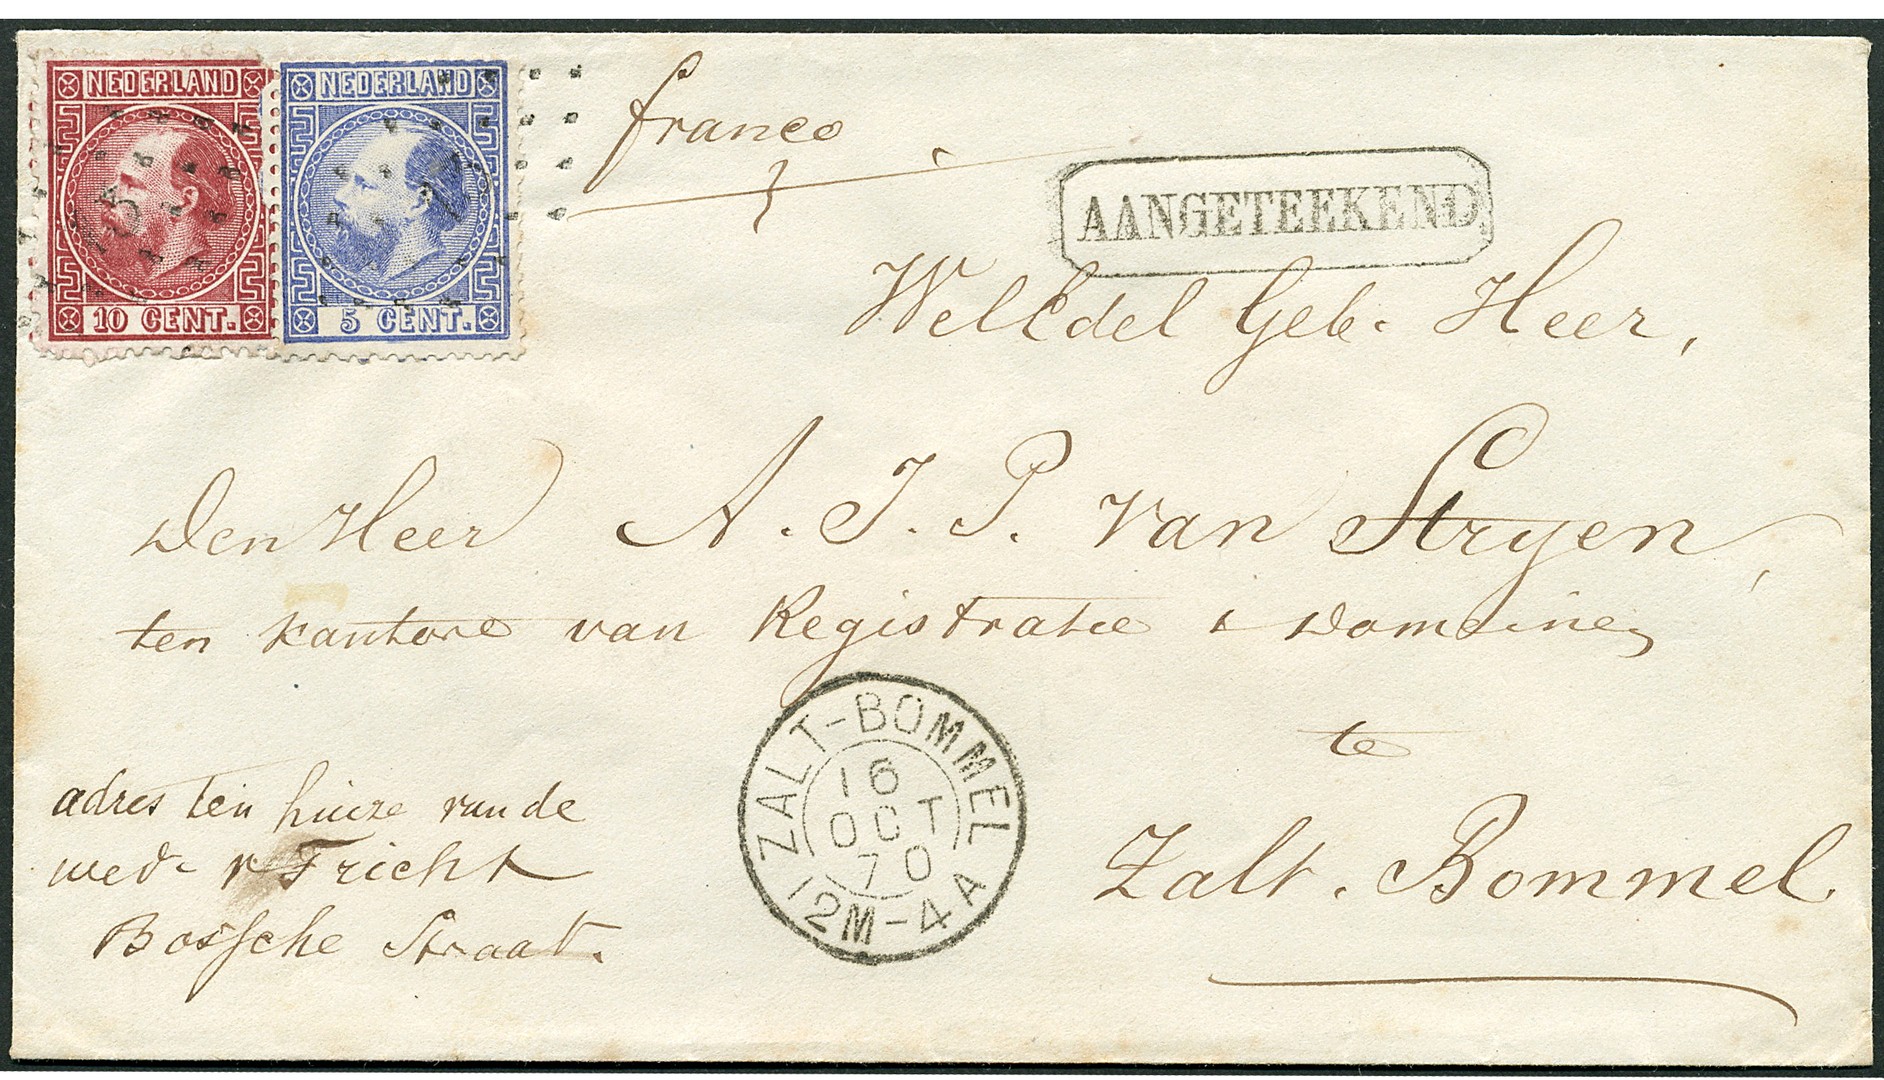 NEDERLAND
10 CENT.
NEDERLAND
5 CENT.
franco
AANGETEEKEND
WelEdel Geb. Heer,
Den Heer A. J. P. van Stryen,
ten kantore van Registratie & Domeinen
te
Zalt-Bommel
ZALT-BOMMEL
16
OCT
70
12M-4A
adres ten huize van de
wed. v Tricht
Bossche Straat.